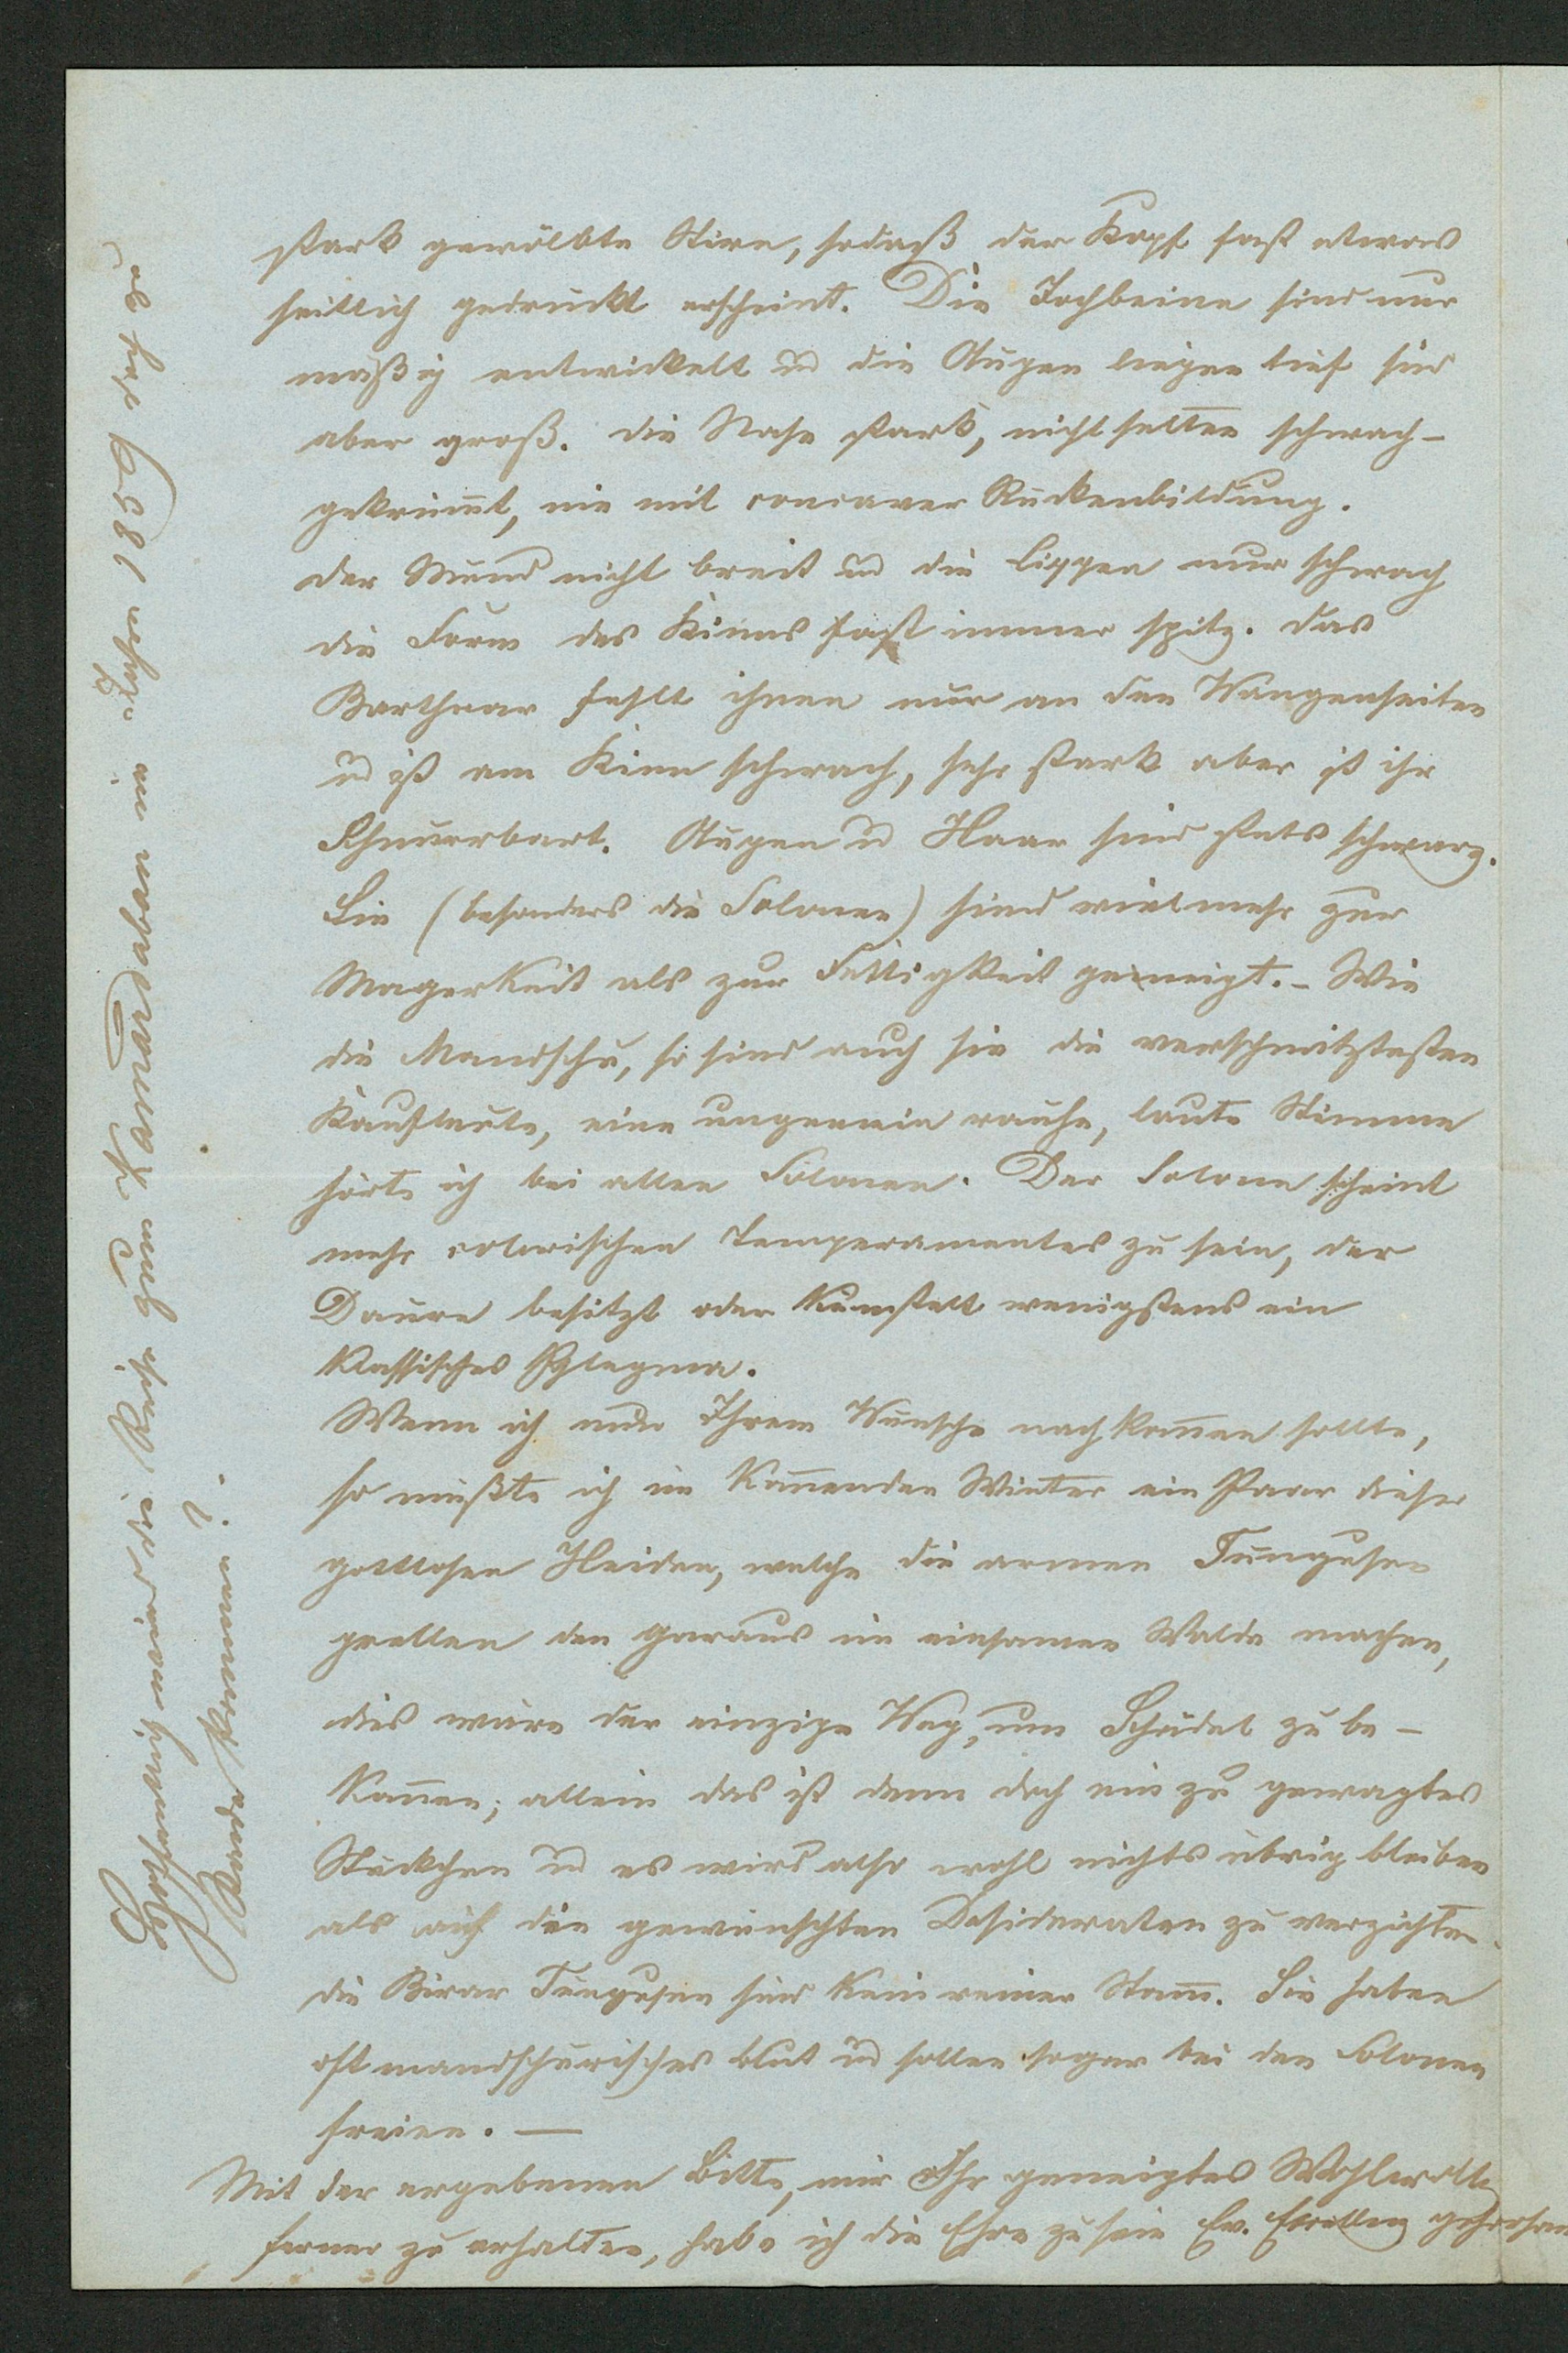 stark gewölbte Stirn, sodaß der Kopf fast etwas
seitlich gedruckt erscheint. Die Jochbeine sind nur
mäßig entwickelt u die Augen liegen tief sind
aber groß. die Nase stark, nicht selten schwach-
gekrüm̅t, nie mit concaver Rückenbildung.
der Mund nicht breit und die Lippen nur schwach
die Form des Kinns fast immer spitz. das
Barthaar fehlt ihnen nur an den Wangenseiten
u ist am Kinn schwach, sehr stark aber ist ihr
Schnurrbart. Augen u Haar sind stets schwarz.
Sie (besonders die Solonen) sind vielmehr zur
Magerkeit als zur Fettigkeit geneigt. - Wie
die Mandschu, so sind auch sie die verschmitztesten
Kaufleute, eine ungemein rauhe, laute Stimme
hörte ich bei allen Solonen. Der Solone scheint
mehr colerischen Temperamentes zu sein, der
Daure besitzt oder kunstelt wenigstens ein
klassisches Phlegma.
Wenn ich nun Ihrem Wunsche nachkom̅en sollte,
so müßte ich im kom̅enden Winter ein Paar dieser
gottlosen Heiden, welche die armen Tungusen
prellen den Garaus im einsamen Walde machen,
dies wäre der einzige Weg, um Schädel zu be-
kom̅en; allein das ist denn doch ein zu gewagtes
Stückchen u es wird also wohl nichts übrig bleiben
als auf die gewünschten Desideraten zu verzichten.
die Birar Tungusen sind kein reiner Stam̅. Sie haben
oft mandschurisches Blut u sollen sogar bei den Solonen
freien. —
Mit der ergebenen Bitte, mir Ihr geneigtes Wohlwollen
ferner zu erhalten, habe ich die Ehre zu sein Ew. Excellenz gehorsam
Gustav Radde
1859